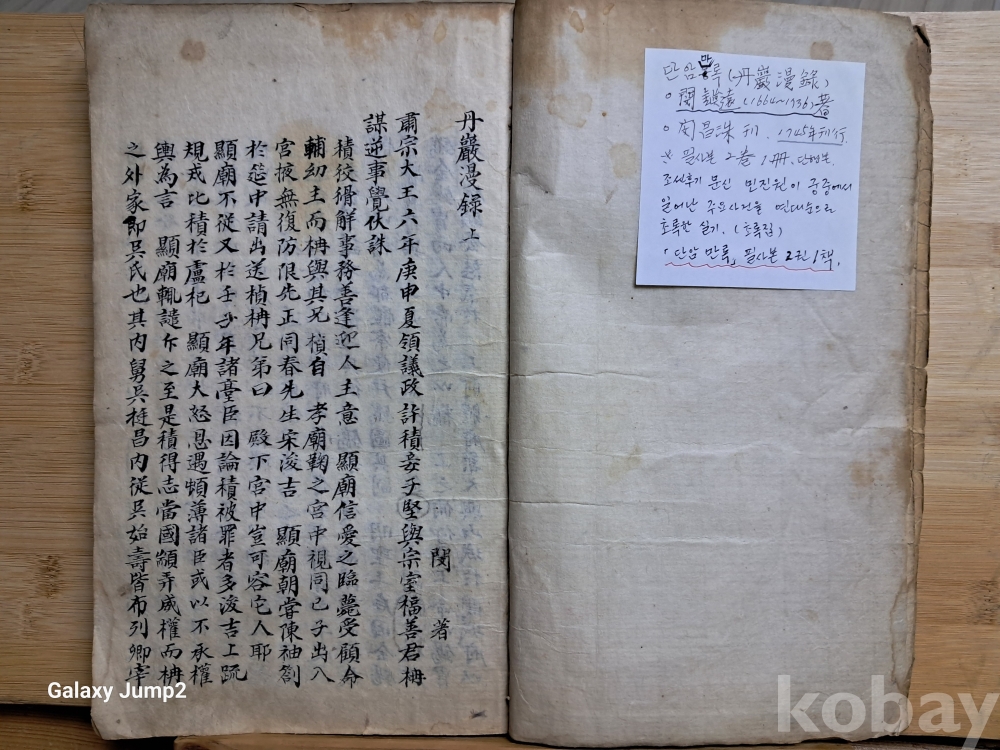 丹巖漫錄 上
閔 著
肅宗大王六年庚申夏領議政許積妾子堅與宗室福善君柟
謀逆事覺伏誅
積狡猾解事務善逢迎人主意 顯廟信愛之臨薨受顧命
輔幼主而柟與其兄楨自 孝廟鞠之宮中視同己子出入
宮掖無復防限先正同春先生宋浚吉 顯廟朝嘗陳袖劄
於筵中請出送楨柟兄弟曰 殿下宮中豈可容它人耶
顯廟不從又於壬子年諸臺臣因論積被罪者多浚吉上疏
規戒比積於盧杞 顯廟大怒恩遇頓薄諸臣或以不承權
輿為言 顯廟輒譴斥之至是積得志當國顓弄威權而柟
之外家即吳氏也其內舅吳挺昌內從吳始壽皆布列卿宰
단암만록(丹巖漫錄)
○ 閔鎭遠(1664~1736)著
○ 閔昌洙 刊. 1745年刊行
※ 필사본 2卷 1冊. 단행본
조선후기 문신 민진원이 궁중에서
일어난 주요사건을 연대순으로
초록한 실기. (초록집)
단암만록, 필사본 2권 1책.
Galaxy Jump2
kobay